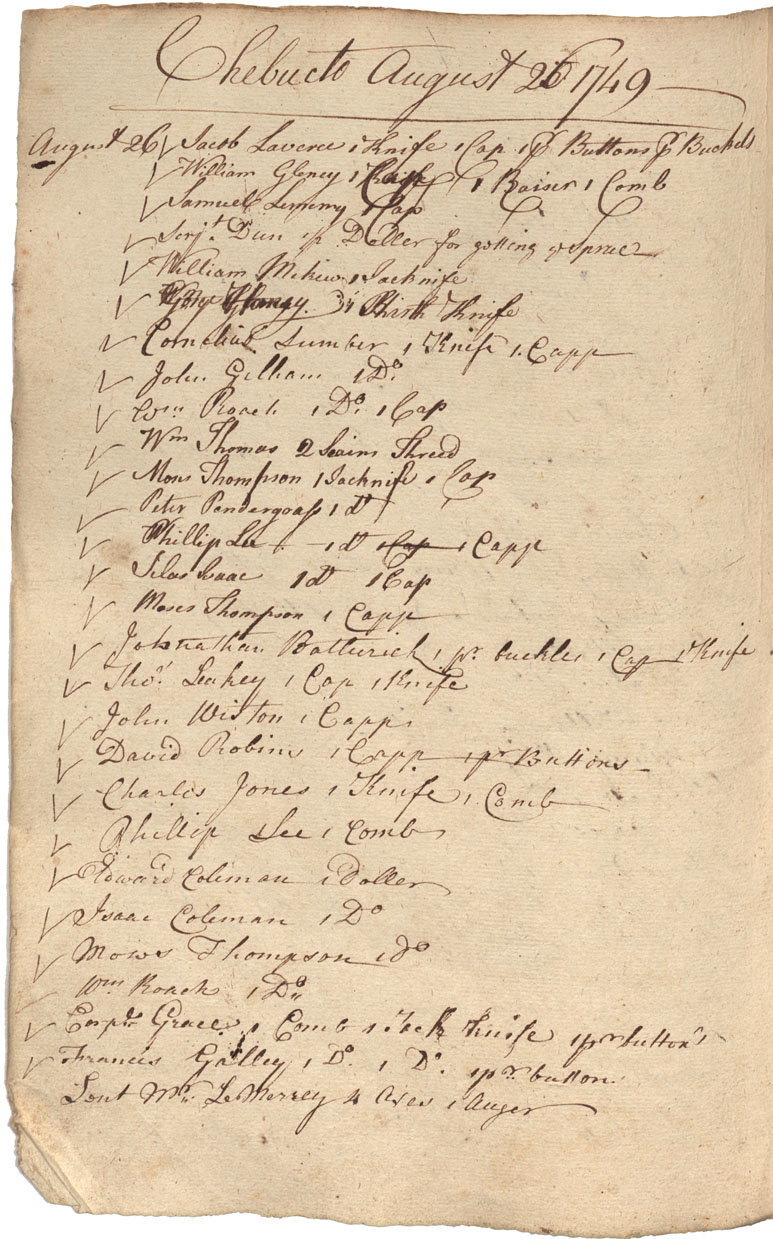 Chebucto August 26 1749
August 26 Jacob Laverce 1 Knife 1 Cap 1 pr Buttons pr Buckels
William Gleney 1 Cap 1 Raiser 1 Comb
Samuel Lemmy 1 Cap
Serjt. Dun 1 pr Doller for getting ye Spruce
William Mckew 1 Jacknife
Knife
Cornelius Lumber 1 Knife 1 Capp
John Gilham 1 Do
Wm Roach 1 Do 1 Cap
Wm Thomas 2 Scains Thred
Mons Thompson 1 Jacknife 1 Cap
Peter Pendergrass 1 do
Phillip Lee 1 do Cap 1 Capp
Silas Isaac 1 do 1 Cap
Moses Thompson 1 Capp
Johnathan Batterick 1 pr buckles 1 Cap 1 Knife
Thos Leahey 1 Cap 1 Knife
John Wiston 1 Capp
David Robins 1 Capp 1 pr Buttons
Charles Jones 1 Knife 1 Comb
Phillip Lee 1 Comb
Edward Coleman 1 Doller
Isaac Coleman 1 Do
Mows Thompson 1 do
Wm Roach 1 Do
Corpl Grace 1 Comb 1 Jack Knife 1 pr buttons
Francis Galley 1 Do. 1 Do. 1 pr button
Lent Mr. LeMerrey 4 Axes 1 Auger